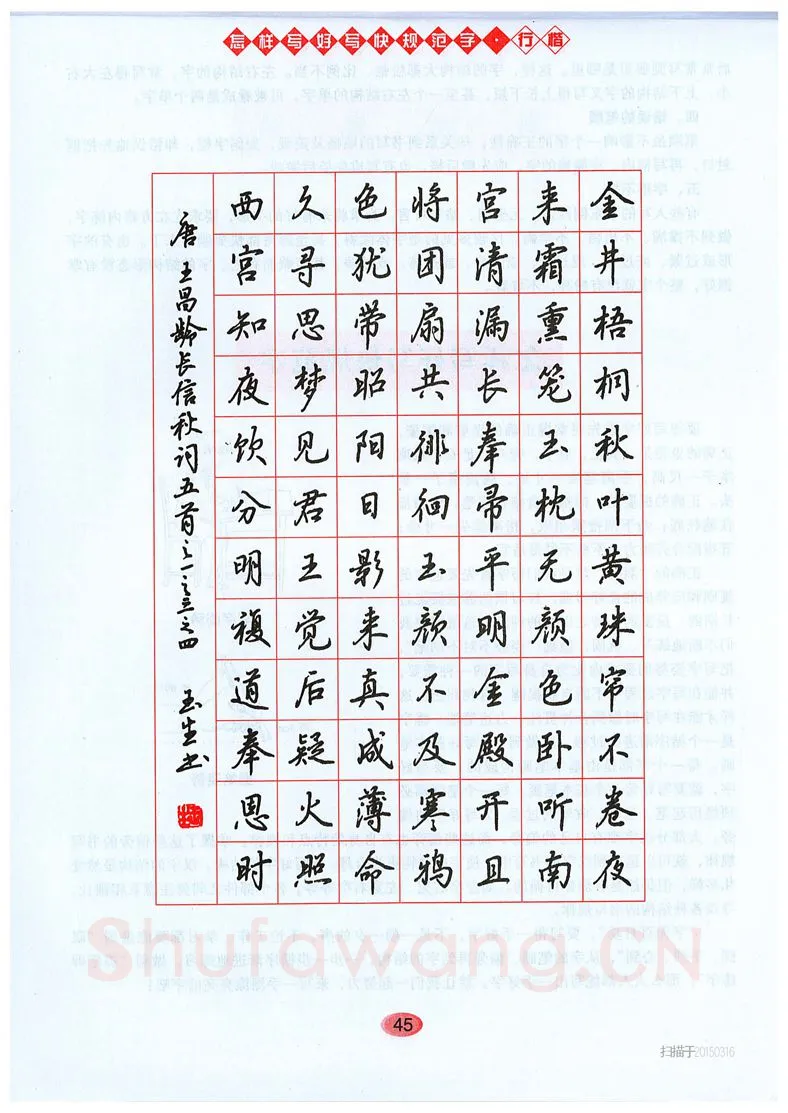 怎样写好写快规范字·行楷
金井梧桐秋叶黄珠帘不卷夜
来霜熏笼玉枕无颜色卧听南
宫清漏长奉帚平明金殿开且
将团扇共徘徊玉颜不及寒鸦
色犹带昭阳日影来真成薄命
久寻思梦见君王觉后疑火照
西宫知夜饮分明複道奉恩时
唐王昌龄长信秋词五首之一之三之四 玉生书
Shufawang.CN
45
扫描于20150316